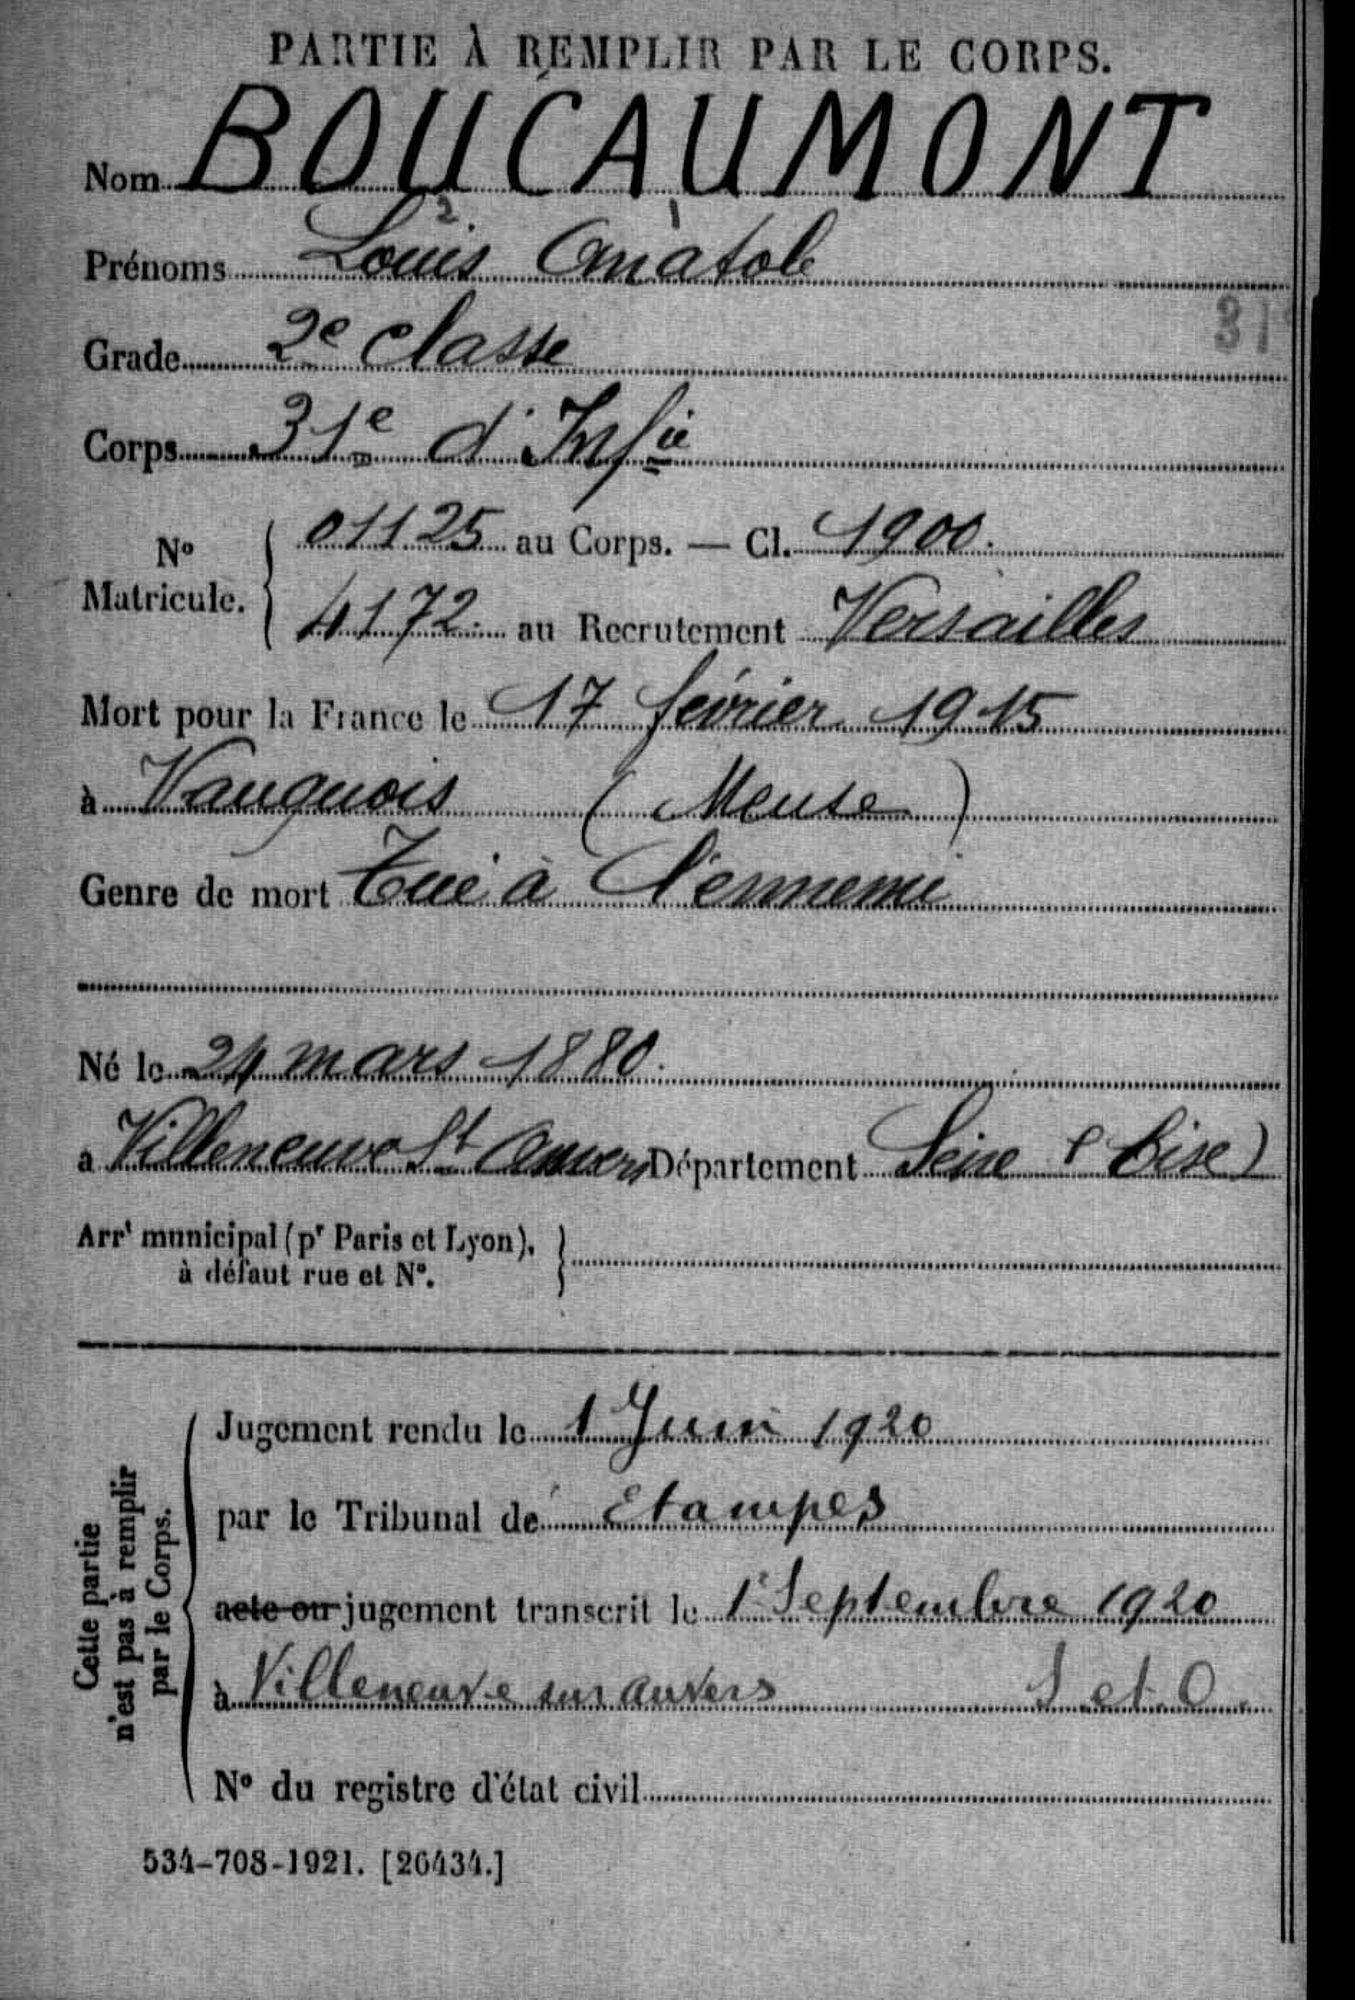 PARTIE À REMPLIR PAR LE CORPS.
Nom BOUCAUMONT
2 1
Prénoms Louis Anatole
Grade 2e classe
31
Corps 31e d'Infie
No Matricule. { 01125 au Corps. — Cl. 1900.
4172. au Recrutement Versailles
Mort pour la France le 17 février 1915
à Vauquois (Meuse)
Genre de mort Tué à l'ennemi
Né le 24 mars 1880.
à Villeneuve St Auvers Département Seine (Oise)
Arrt municipal (pr Paris et Lyon), à défaut rue et No. }
Cette partie n'est pas à remplir par le Corps.
Jugement rendu le 1 Juin 1920
par le Tribunal de Etampes
acte ou jugement transcrit le 1r Septembre 1920
à Villeneuve sur auvers S et O.
No du registre d'état civil
534-708-1921. [26434.]